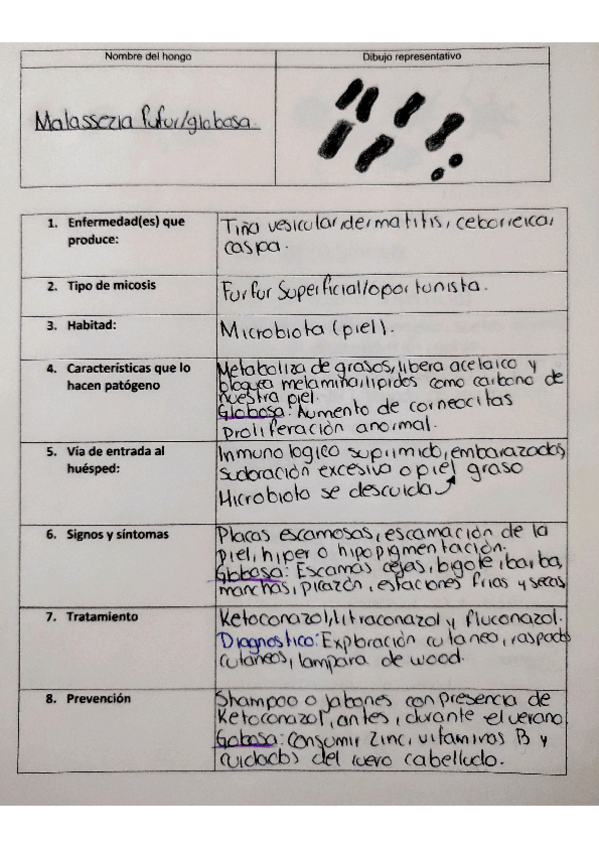 Nombre del hongo
Dibujo representativo
Malassezia fufur/globosa.
1. Enfermedad(es) que
produce:
Tiña vesicular, dermatitis, ceborreica,
caspa.
2. Tipo de micosis
Furfur Superficial/oportunista.
3. Habitad:
Microbiota (piel).
4. Características que lo
hacen patógeno
Metaboliza de grasas, libera acelaico y
bloquea melamina, lipidos como carbono de
nuestra piel.
Globosa: Aumento de corneocitas
Proliferación anormal.
5. Vía de entrada al
huésped:
Inmunologico suprimido, embarazadas,
sudoración excesiva o piel graso
Microbiota se descuida
6. Signos y síntomas
Placas escamosas, escamación de la
piel, hiper o hipopigmentación.
Globosa: Escamas cejas, bigote, barba,
manchas, picazón, estaciones frias y secas
7. Tratamiento
Ketoconazol, Litraconazol y fluconazol.
Diagnostico: Exploración cutaneo, raspados
cutáneos, lampara de wood.
8. Prevención
Shampoo o jabones con presencia de
Ketoconazol, antes, durante el verano
Gobosa: Consumir Zinc, vitaminas B y
cuidados del cuero cabelludo.